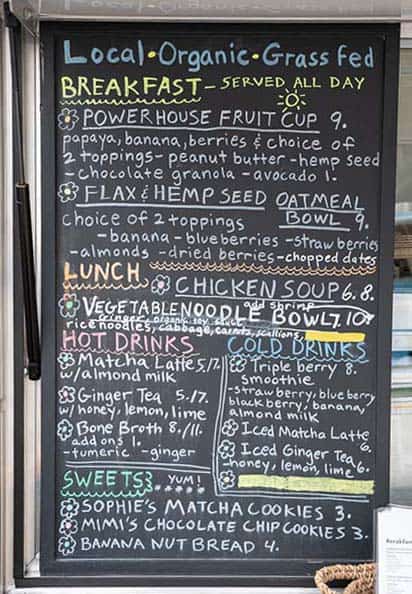 Local • Organic • Grass Fed
BREAKFAST - SERVED ALL DAY
POWERHOUSE FRUIT CUP 9.
papaya, banana, berries & choice of
2 toppings - peanut butter - hemp seed
- chocolate granola - avocado 1.
FLAX & HEMP SEED OATMEAL
BOWL 9.
choice of 2 toppings
- banana - blueberries - strawberries
- almonds - dried berries - chopped dates
LUNCH
CHICKEN SOUP 6. 8.
add shrimp
VEGETABLE NOODLE BOWL 7. 10.
Ginger organic soy
rice noodles, cabbage, carrots, scallions,
HOT DRINKS
Matcha Latte 5./7.
w/almond milk
Ginger Tea 5./7.
w/honey, lemon, lime
Bone Broth 8./11.
add ons 1.
- tumeric - ginger
COLD DRINKS
Triple berry 8.
smoothie
- strawberry, blueberry
blackberry, banana,
almond milk
Iced Matcha Latte
6.
Iced Ginger Tea 6.
- honey, lemon, lime
SWEETS YUM!
SOPHIE'S MATCHA COOKIES 3.
MIMI'S CHOCOLATE CHIP COOKIES 3.
BANANA NUT BREAD 4.
Breakfast